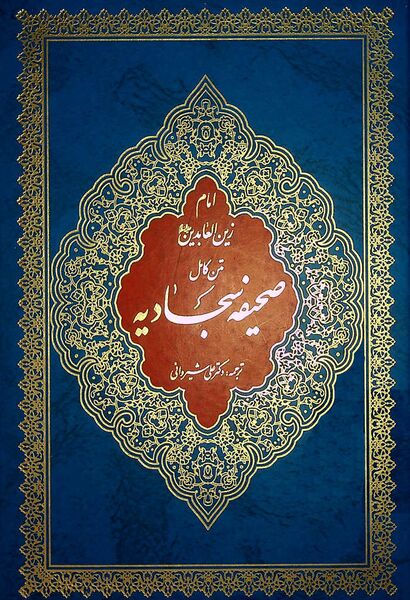 امام
زین العابدین
متن کامل
صحیفه سجادیه
ترجمه: دکتر علی شیروانی